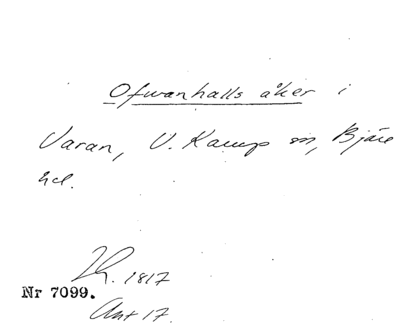 Ofwanhalls åker i
Varan, V. Karup sn, Bjäre
hd.
1817
Nr 7099.
Akt 17.